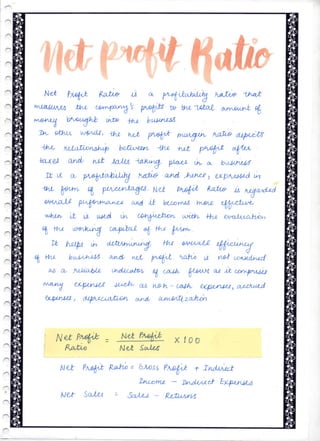 Net Profit Ratio
Net Profit Ratio is a profitability ratio that
measures the company's profits to the total amount of
money brought into the business
In other words, the net profit margin ratio depicts
the relationship between the net profit after
taxes and net sales taking place in a business.
It is a profitability ratio and hence, expressed in
the form of percentages. Net Profit Ratio is regarded
overall performance and it becomes more effective
when it is used in conjuction with the evaluation
of the working capital of the firm.
It helps in determining the overall efficiency
of the business and net profit ratio is not considered
as a reliable indicator of cash flows as it comprises
many expenses such as non-cash expenses, accrued
expenses, depreciation and amortization
Net Profit Ratio = Net Profit / Net Sales X 100
Net Profit Ratio = Gross Profit + Indirect
Income - Indirect Expenses
Net Sales = Sales - Returns